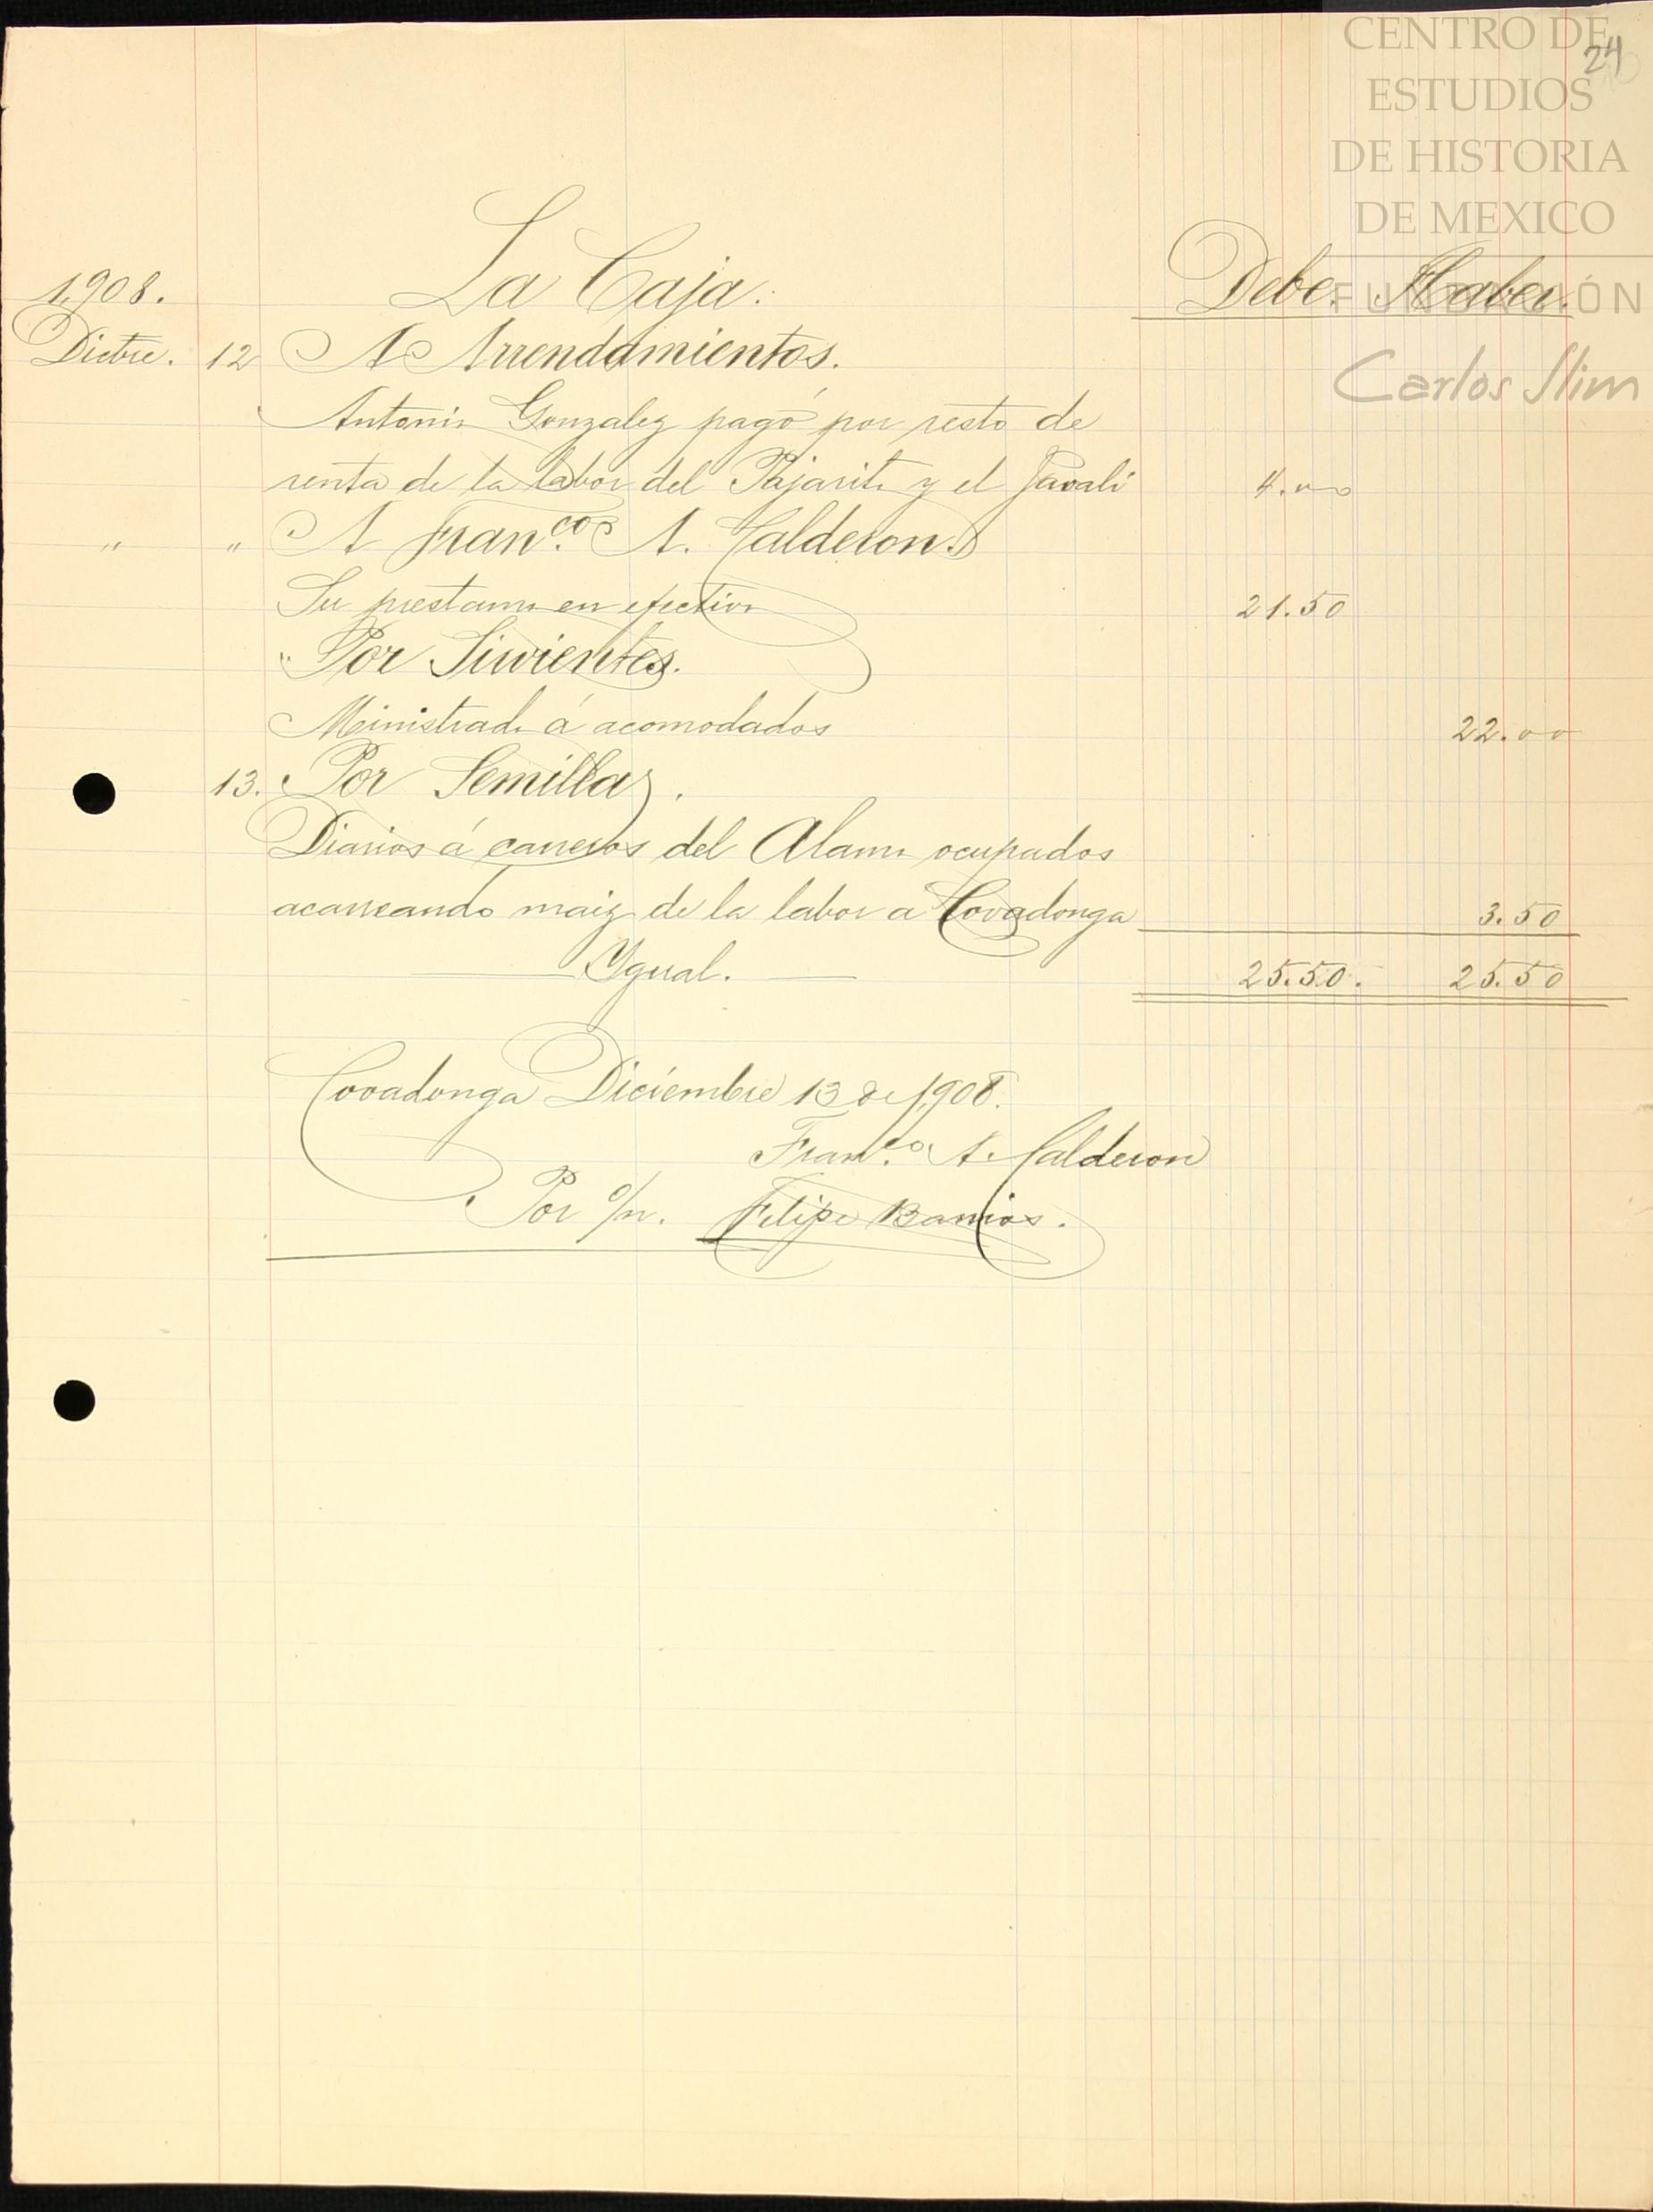 CENTRO DE
ESTUDIOS
DE HISTORIA
DE MEXICO
FUNDACIÓN
Carlos Slim
24
1,908. La Caja. Debe. Haber.
Dictre. 12 A Arrendamientos.
Antonio Gonzalez pagó por resto de
renta de la labor del Pajarito y el Javali 4.00
" " A Fran.co A. Calderon.
Su prestamo en efectivo 21.50
" Por Sirvientes.
Ministrado á acomodados 22.00
13. Por Semillas.
Diarios á carreros del Alamo ocupados
acarreando maiz de la labor a Covadonga 3.50
Ygual. 25.50. 25.50
Covadonga Diciembre 13 de 1,908.
Fran.co A. Calderon
Por o/n. Felipe Barrios.